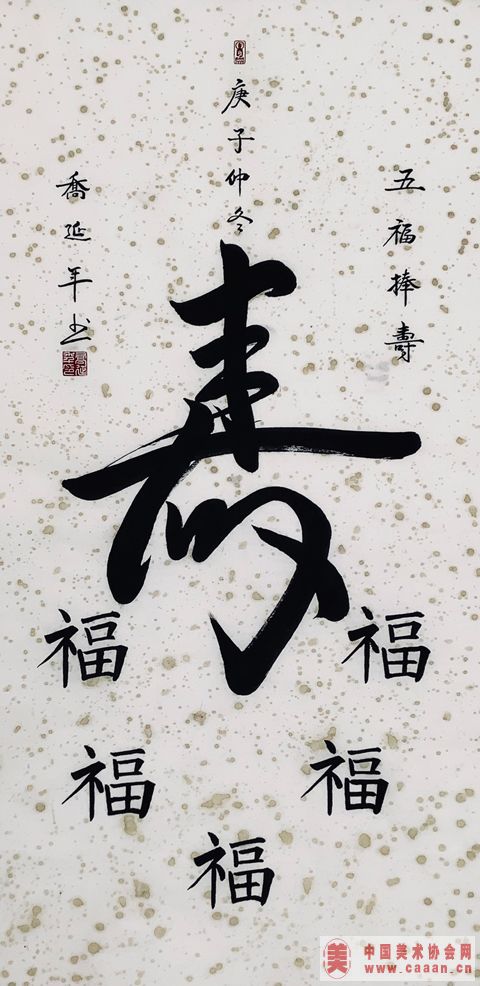 五福捧壽
庚子仲冬
壽
福
福
福
福
福
喬延年书
美 中国美术协会网
www.caaan.cn